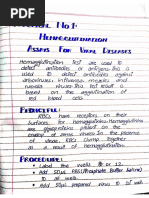 Practical No 1.
Hemagglutination
Assays For Viral Diseases
Hemagglutination test are used to
detect antibodies or antigens this is
used to detect antibodies against
adenoviruses, influenza, measles and
rubella viruses. This test is
based on the agglutination of
red blood cells.
Principle:
RBCs have receptors on their
surfaces for hemagglutinins. Hemagglutinins
are glycoproteins on the
envelop of some viruses. In the presence
of virus RBCs clump together
as a result of binding.
Procedure:
Label the wells 1 or 12.
Add 50µl PBS (Phosphate Buffer Saline)
to all wells.
Add 50µl prepared virus to 1st well